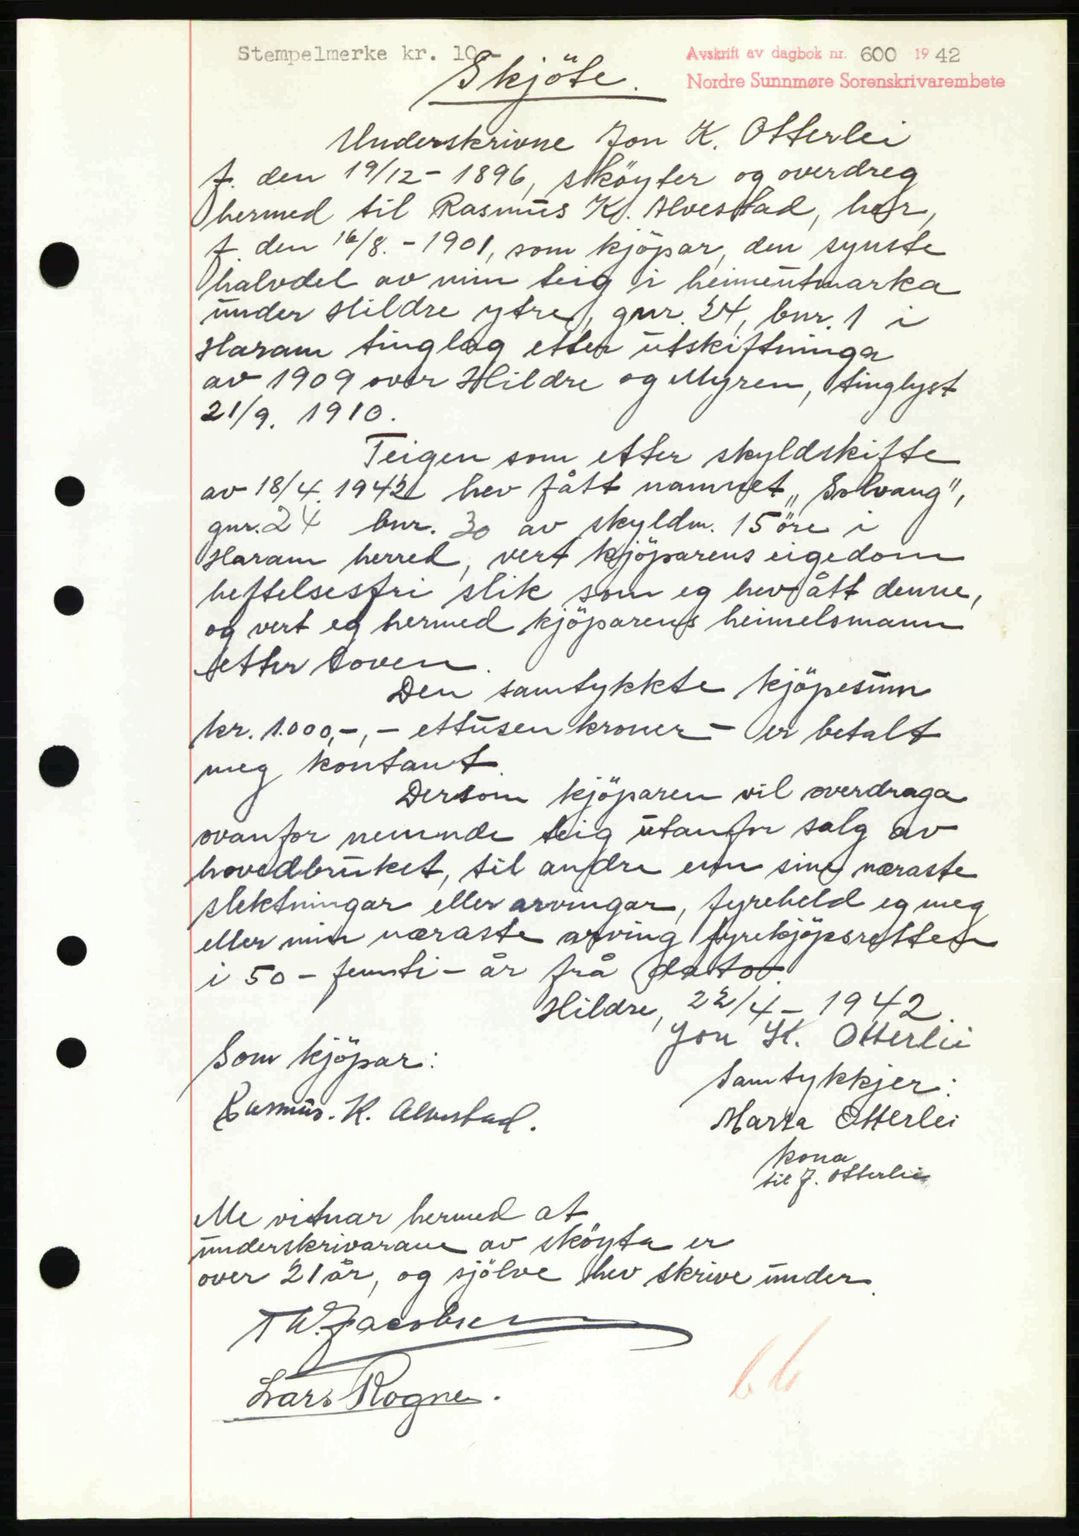 Stempelmerke kr. 10
Avskrift av dagbok nr. 600 1942
Nordre Sunnmøre Sorenskrivarembete
Skjöte.
Underskrivne Jon K. Otterlei
f. den 19/12 - 1896, sköyter og overdreg
hermed til Rasmus K. Alvestad, her,
f. den 16/8. - 1901, som kjöpar, den synste
halvdel av min teig i heimeutmarka
under Hildre ytre, gnr. 24, bnr. 1 i
Haram tinglag etter utskiftninga
av 1909 over Hildre og Myren, tinglyst
21/9. 1910.
Teigen som etter skyldskifte
av 18/4. 1942 hev fått namnet „Solvang",
gnr. 24 bnr. 30 av skyldm. 15 öre i
Haram herred, vert kjöparens eigedom
heftelsesfri slik som eg hev ått denne,
og vert eg hermed kjöparens heimelsmann
etter loven.
Den samtykkte kjöpesum
kr. 1.000,-,- ettusen kroner - er betalt
meg kontant.
Dersom kjöparen vil overdraga
ovanfor nemnde teig utanfor salg av
hovedbruket, til andre enn sine næraste
slektningar eller arvingar, fyreheld eg meg
eller min næraste arving fyrekjöpsretten
i 50 - femti - år frå dato.
Hildre, 22/4 - 1942.
Jon K. Otterlei
Som kjöpar:
Samtykkjer:
Rasmus. K. Alvestad.
Marta Otterlei
kona
til J. Otterlei
Me vitnar hermed at
underskrivarane av sköyta er
over 21 år, og sjölve hev skrive under.
T W. Jacobsen
Lars Rogne.